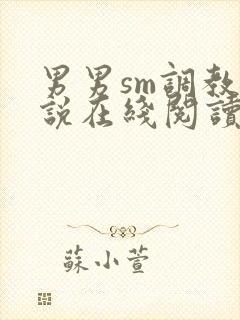 男男sm調教
説在綫閱讀
蘇小萱